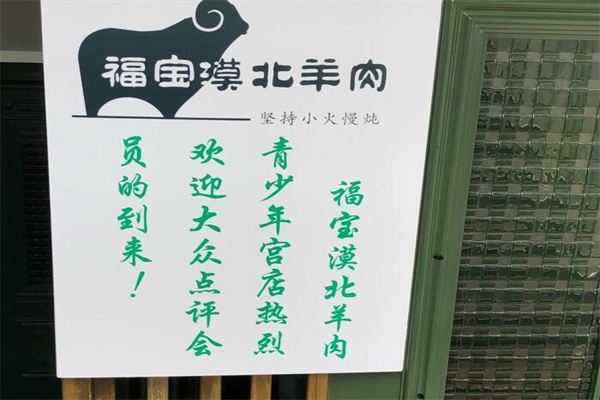 福宝漠北羊肉
坚持小火慢炖
福宝漠北羊肉
青少年宫店热烈
欢迎大众点评会
员的到来！